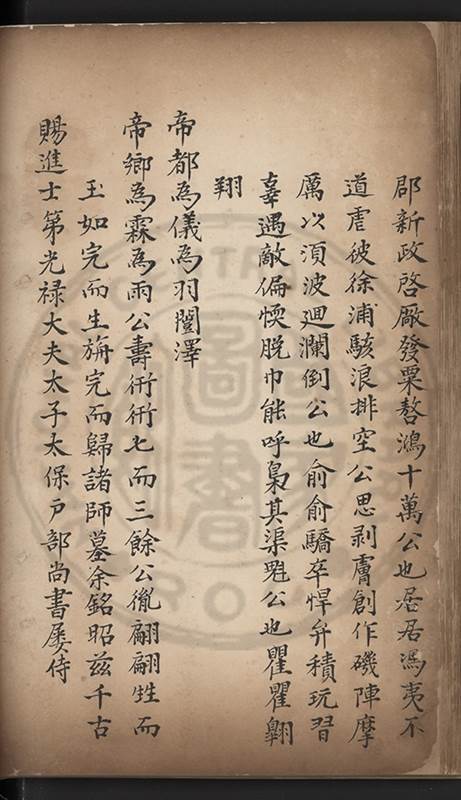 郡新政啓廠發粟嗸鴻十萬公也居居馮夷不
道虐彼徐浦駭浪排空公思剥膚創作磯陣摩
厲以湏波廻瀾倒公也俞俞驕卒悍弁積玩習
辜遇敵偏愞脫巾能呼梟其渠魁公也瞿瞿翶
翔
帝都為儀為羽闓澤
帝鄉為霖為雨公壽衎衎七而三餘公胤翩翩甡而
玉如完而生旃完而歸諸師墓余銘昭兹千古
賜進士第光禄大夫太子太保戶部尚書屡侍